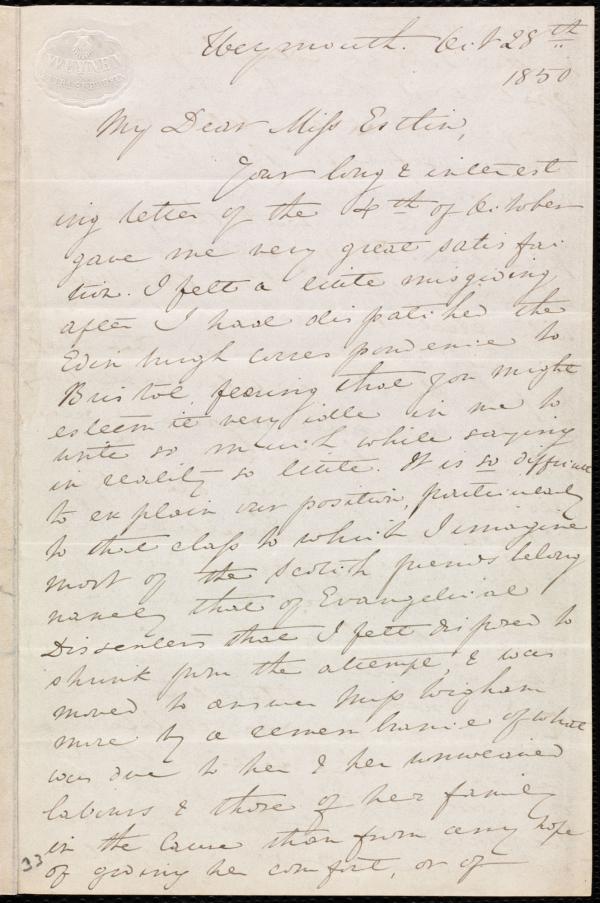 Weymouth. Oct 28th
1850
My Dear Miss Estlin,
Your long & interest
ing letter of the 4th of October
gave me very great satisfac
tion. I felt a little misgiving
after I had dispatched the
Edinburgh correspondence to
Bristol, fearing that you might
esteem it very idle in me to
write so much while saying
in reality so little. It is so difficult
to explain our position, particularly
to that class to which I imagine
most of the Scotish friends belong
namely that of Evangelical
Dissenters that I felt disposed to
shrink from the attempt, & was
moved to answer Miss Wigham
more by a remembrance of what
was due to her & her unwearied
labours & those of her family
in the cause than from any hope
of giving her comfort, or of
33